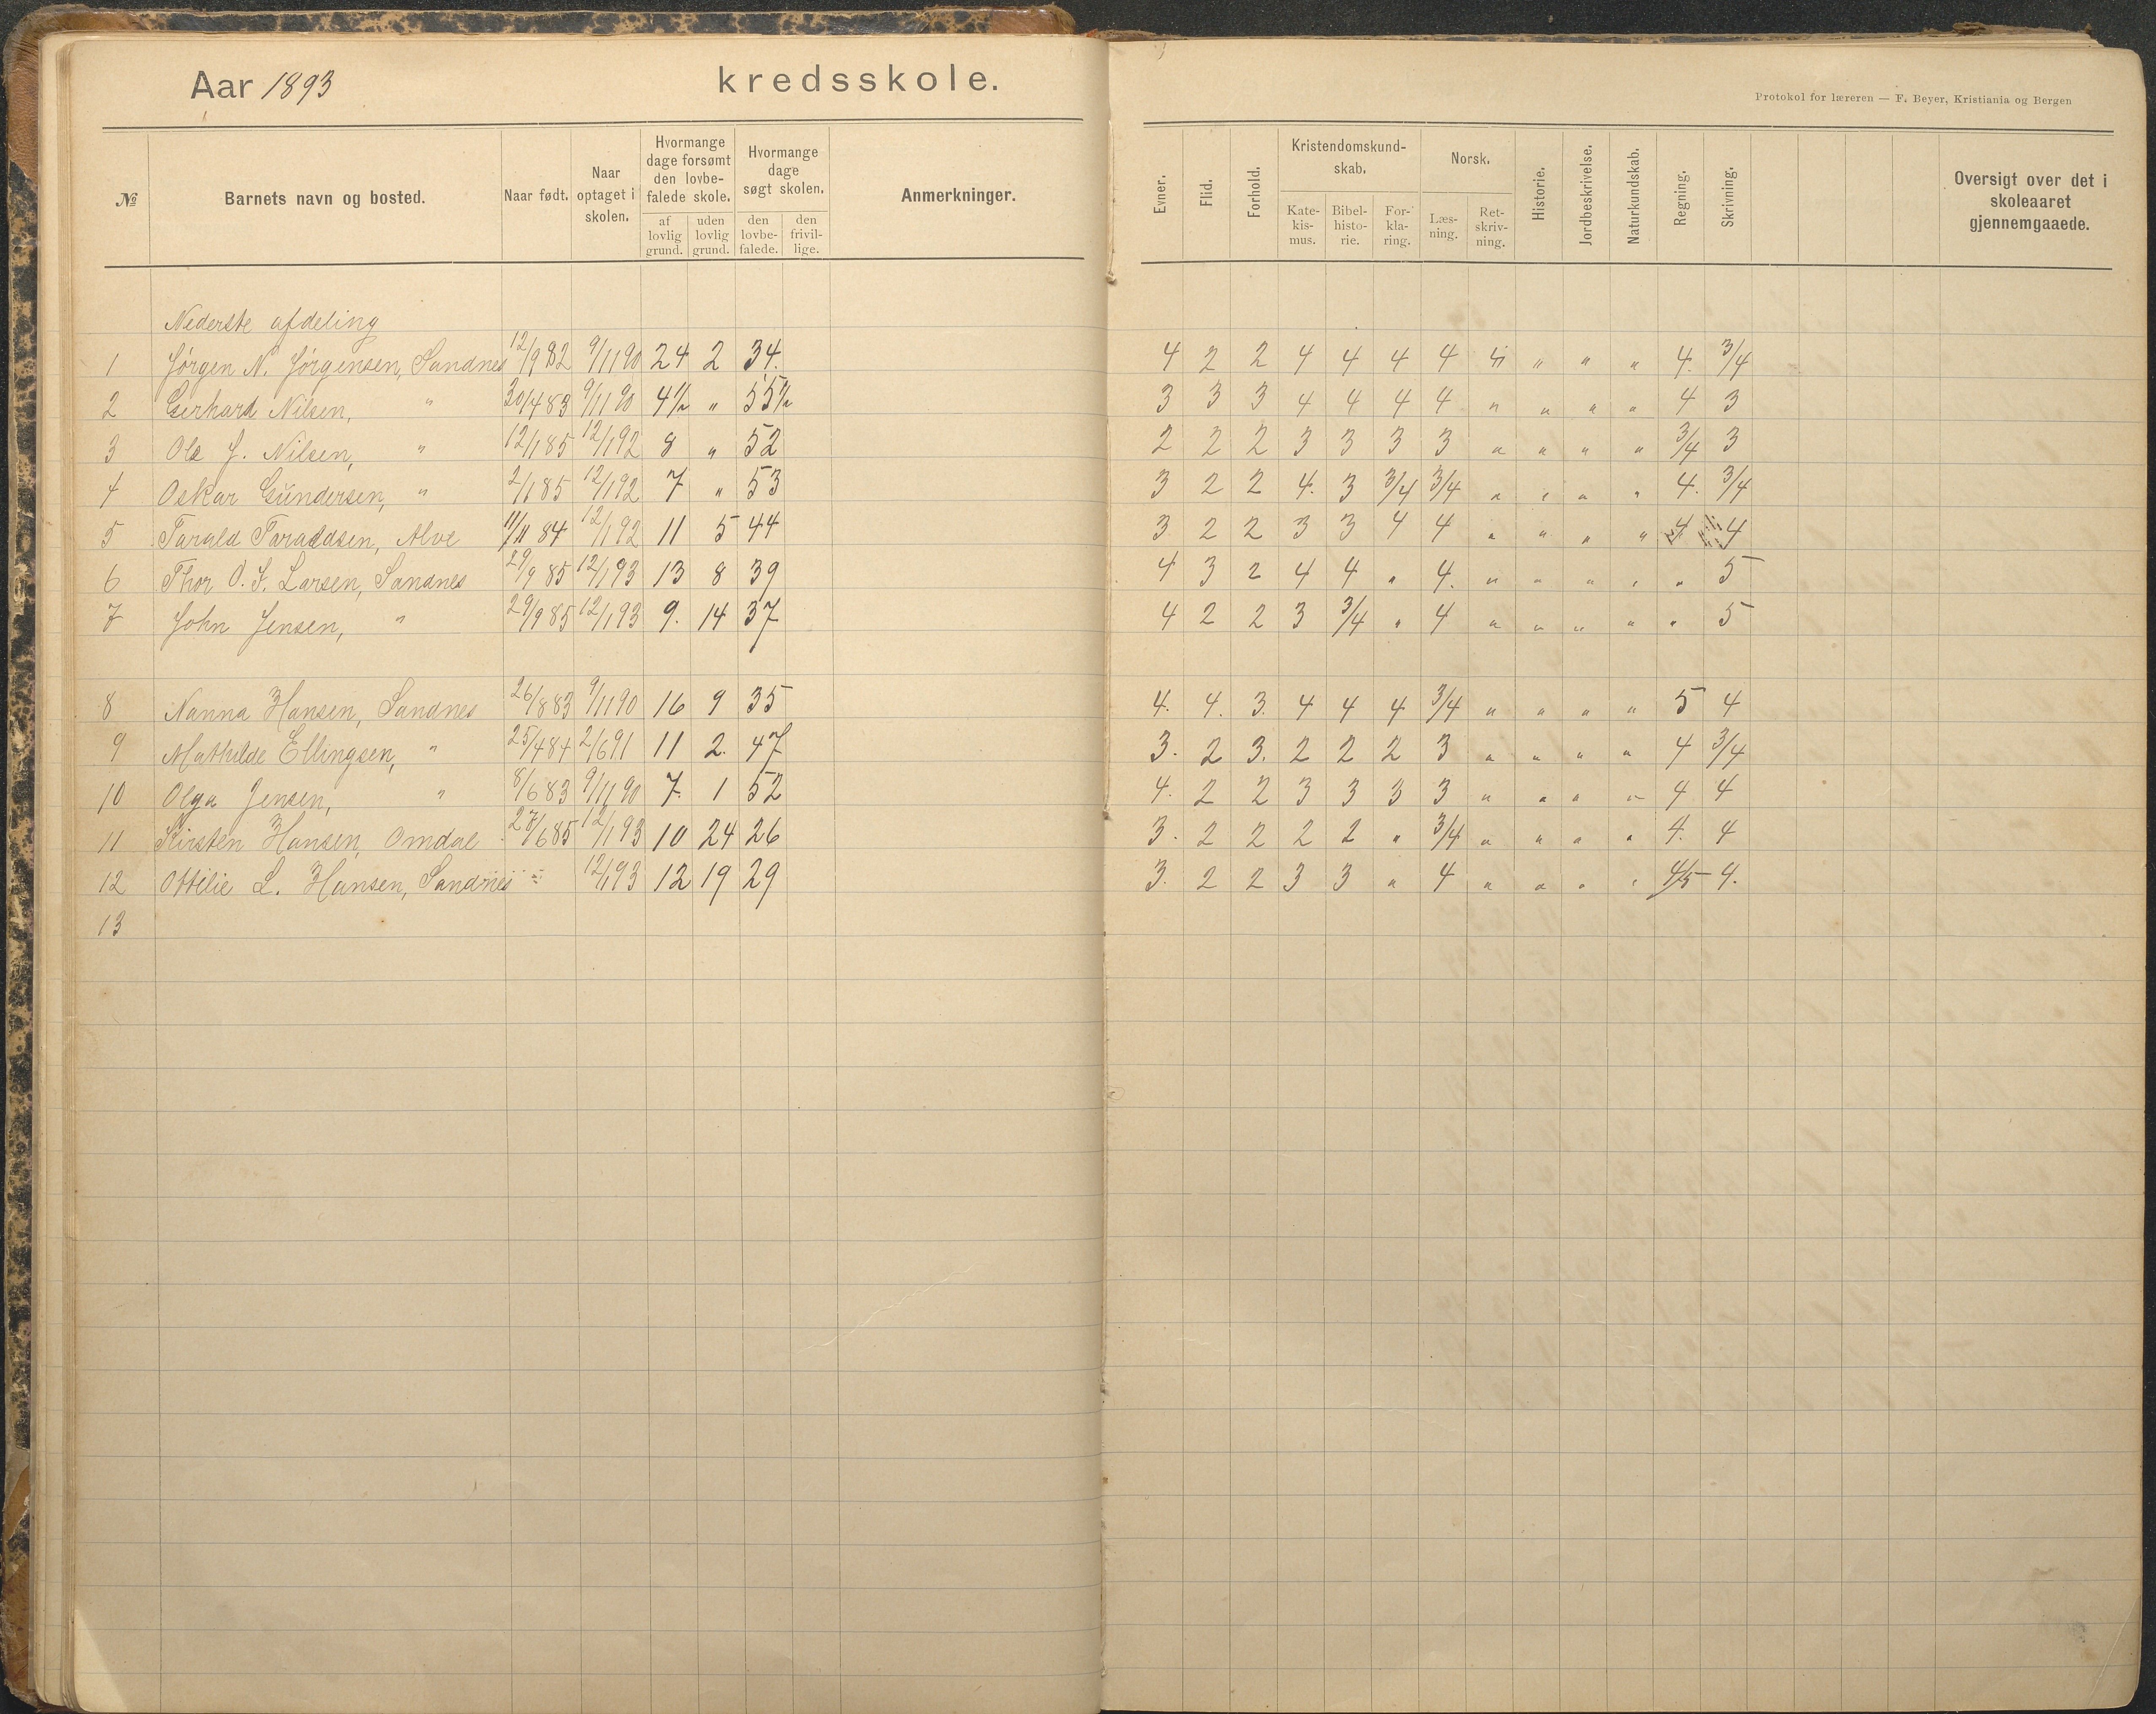 Aar 1893 kredsskole.
Protokol for læreren — F. Beyer, Kristiania og Bergen
№ Barnets navn og bosted. Naar født. Naar optaget i skolen. Hvormange dage forsømt den lovbefalede skole. af lovlig grund. uden lovlig grund. Hvormange dage søgt skolen. den lovbefalede. den frivillige. Anmerkninger. Evner. Flid. Forhold. Kristendomskundskab. Katekismus. Bibelhistorie. Forklaring. Norsk. Læsning. Retskrivning. Historie. Jordbeskrivelse. Naturkundskab. Regning. Skrivning. Oversigt over det i skoleaaret gjennemgaaede.
Nederste afdeling
1 Jørgen N. Jørgensen, Sandnes 12/9 82 9/11 90 24 2 34. 4 2 2 4 4 4 4 " " " 4. 3/4
2 Gerhard Nilsen, " 30/4 83 9/11 90 4½ " 55½ 3 3 3 4 4 4 4 " " " " 4 3
3 Ole J. Nilsen, " 12/1 85 12/1 92 8 " 52 2 2 2 3 3 3 3 " " " " 3/4 3
4 Oskar Gundersen, " 2/1 85 12/1 92 7 " 53 3 2 2 4. 3 3/4 3/4 " " " " 4. 3/4
5 Tarald Taraldsen, Alve 11/11 84 12/1 92 11 5 44 3 2 2 3 3 4 4 " " " " 4 4
6 Thor O. F. Larsen, Sandnes 29/9 85 12/1 93 13 8 39 4 3 2 4 4 " 4. " " " " " 5
7 John Jensen, " 29/9 85 12/1 93 9. 14 37 4 2 2 3 3/4 " 4 " " " " " 5
8 Nanna Hansen, Sandnes 26/8 83 9/11 90 16 9 35 4. 4. 3. 4 4 4 3/4 " " " " 5 4
9 Mathilde Ellingsen, " 25/4 84 2/6 91 11 2. 47 3. 2 3. 2 2 2 3 " " " " 4 3/4
10 Olga Jensen, " 8/6 83 9/11 90 7. 1 52 4. 2 2 3 3 3 3 " " " " 4 4
11 Kirsten Hansen Omdal 27/6 85 12/1 93 10 24 26 3. 2 2 2 2 " 3/4 " " " " 4. 4
12 Ottilie L. Hansen, Sandnes 12/1 93 12 19 29 3. 2 2 3 3 " 4 " " " " 4/5 4.
13